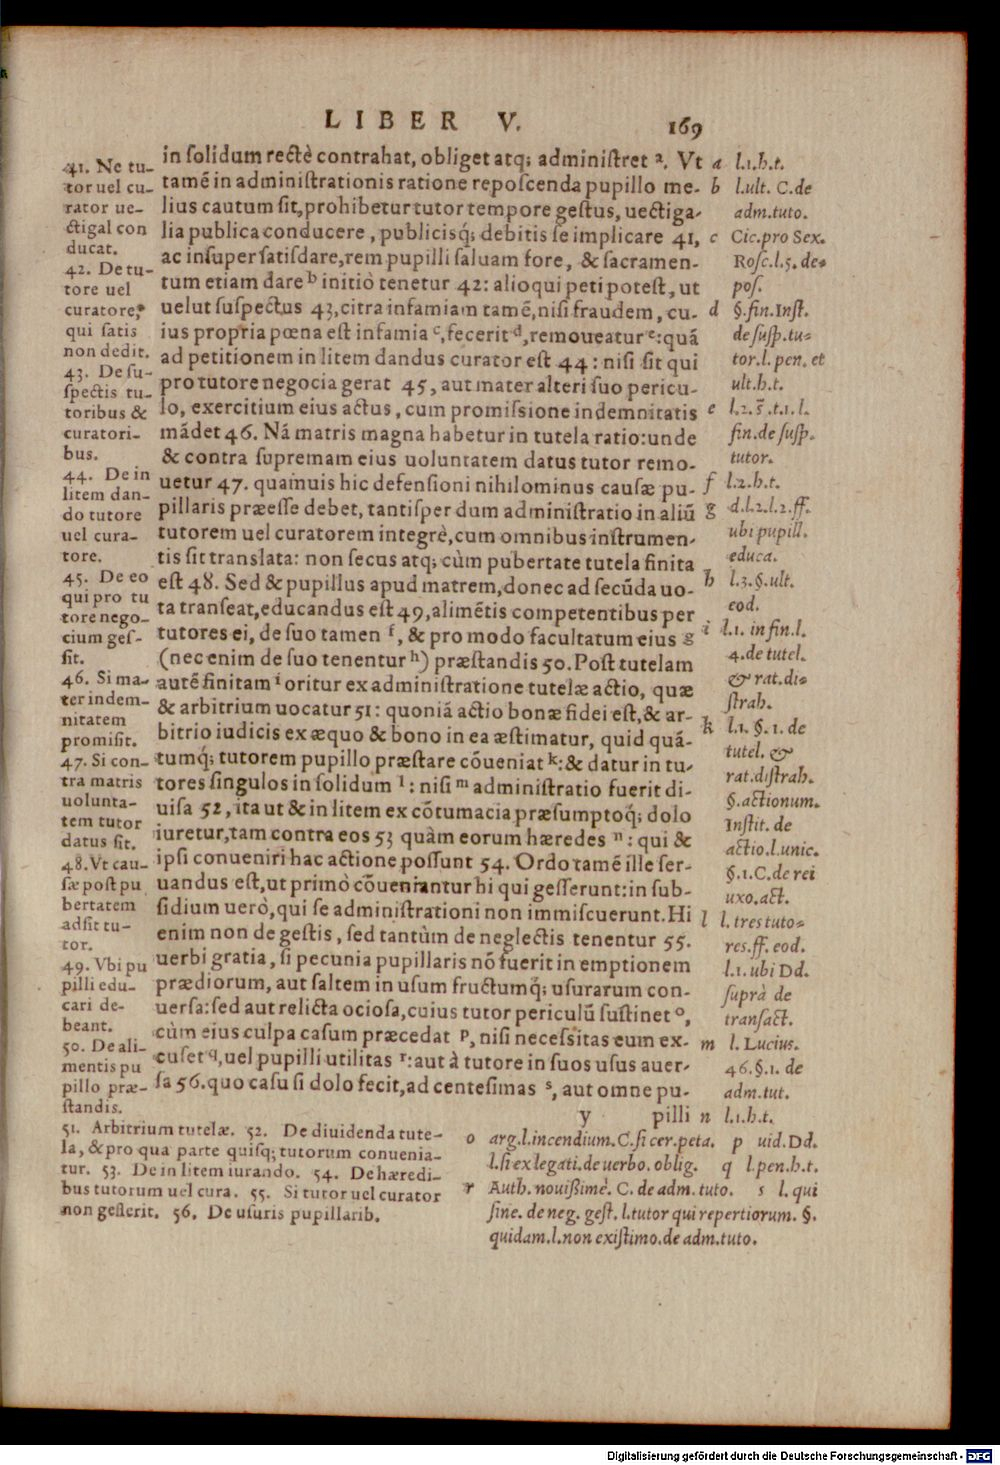 LIBER V. 169
in solidum rectè contrahat, obliget atq; administret ª. Vt
tamē in administrationis ratione reposcenda pupillo me-
lius cautum sit, prohibetur tutor tempore gestus, uectiga-
lia publica conducere, publicisq́; debitis se implicare 41,
ac insuper satisdare, rem pupilli saluam fore, & sacramen-
tum etiam dare ᵇ initiò tenetur 42: alioqui peti potest, ut
uelut suspectus 43, citra infamiam tamē, nisi fraudem, cu-
ius propria pœna est infamia ᶜ, fecerit ᵈ, remoueatur ᵉ: quā
ad petitionem in litem dandus curator est 44: nisi sit qui
pro tutore negocia gerat 45, aut mater alteri suo pericu-
lo, exercitium eius actus, cum promissione indemnitatis
mādet 46. Nā matris magna habetur in tutela ratio: unde
& contra supremam eius uoluntatem datus tutor remo-
uetur 47. quamuis hic defensioni nihilominus causæ pu-
pillaris præesse debet, tantisper dum administratio in aliū
tutorem uel curatorem integrè, cum omnibus instrumen-
tis sit translata: non secus atq; cùm pubertate tutela finita
est 48. Sed & pupillus apud matrem, donec ad secūda uo-
ta transeat, educandus est 49, alimētis competentibus per
tutores ei, de suo tamen ᶠ, & pro modo facultatum eius g
(nec enim de suo tenentur ʰ) præstandis 50. Post tutelam
autē finitam ⁱ oritur ex administratione tutelæ actio, quæ
& arbitrium uocatur 51: quoniā actio bonæ fidei est, & ar-
bitrio iudicis ex æquo & bono in ea æstimatur, quid quā-
tumq́; tutorem pupillo præstare cōueniat ᵏ: & datur in tu-
tores singulos in solidum ˡ: nisi ᵐ administratio fuerit di-
uisa 52, ita ut & in litem ex cōtumacia præsumptoq́; dolo
iuretur, tam contra eos 53 quàm eorum hæredes ⁿ: qui &
ipsi conueniri hac actione possunt 54. Ordo tamē ille ser-
uandus est, ut primò cōueniantur hi qui gesserunt: in sub-
sidium uerò, qui se administrationi non immiscuerunt. Hi
enim non de gestis, sed tantùm de neglectis tenentur 55.
uerbi gratia, si pecunia pupillaris nō fuerit in emptionem
prædiorum, aut saltem in usum fructumq́; usurarum con-
uersa: sed aut relicta ociosa, cuius tutor periculū sustinet ᵒ,
cùm eius culpa casum præcedat ᵖ, nisi necessitas eum ex-
cuset q, uel pupilli utilitas ʳ: aut à tutore in suos usus auer-
sa 56. quo casu si dolo fecit, ad centesimas ˢ, aut omne pu-
y pilli
41. Ne tu-
tor uel cu-
rator ue-
ctigal con
ducat.
42. De tu-
tore uel
curatore,
qui satis
non dedit.
43. De su-
spectis tu-
toribus &
curatori-
bus.
44. De in
litem dan-
do tutore
uel cura-
tore.
45. De eo
qui pro tu
tore nego-
cium ges-
sit.
46. Si ma-
ter indem-
nitatem
promisit.
47. Si con-
tra matris
uolunta-
tem tutor
datus sit.
48. Vt cau-
sæ post pu
bertatem
adsit tu-
tor.
49. Vbi pu
pilli edu-
cari de-
beant.
50. De ali-
mentis pu
pillo præ-
standis.
51. Arbitrium tutelæ. 52. De diuidenda tute-
la, & pro qua parte quisq; tutorum conuenia-
tur. 53. De in litem iurando. 54. De hæredi-
bus tutorum uel cura. 55. Si tutor uel curator
non gesserit. 56. De usuris pupillarib.
a l.1.h.t.
b l.ult. C.de
adm.tuto.
c Cic.pro Sex.
Rosc.l.5. de-
pos.
d §.fin.Inst.
de susp.tu-
tor.l. pen. et
ult.h.t.
e l.2. s̄ .t.1. l.
fin.de susp.
tutor.
f l.2.h.t.
g d.l.2.l.2.ff.
ubi pupill.
educa.
h l.3.§.ult.
eod.
i l.1. in fin.l.
4.de tutel.
& rat.di-
strah.
k l.1. §.1. de
tutel. &
rat.distrah.
§.actionum.
Instit. de
actio.l.unic.
§.1.C.de rei
uxo.act.
l l. tres tuto-
res.ff. eod.
l.1. ubi Dd.
suprà de
transact.
m l. Lucius.
46.§.1. de
adm.tut.
n l.1.h.t.
o arg.l.incendium.C.si cer.peta. p uid.Dd.
l.si ex legati.de uerbo. oblig. q l.pen.h.t.
r Auth.nouißimè. C. de adm. tuto. s l. qui
sine. de neg. gest. l.tutor qui repertiorum. §.
quidam.l.non existimo.de adm.tuto.
Digitalisierung gefördert durch die Deutsche Forschungsgemeinschaft - DFG